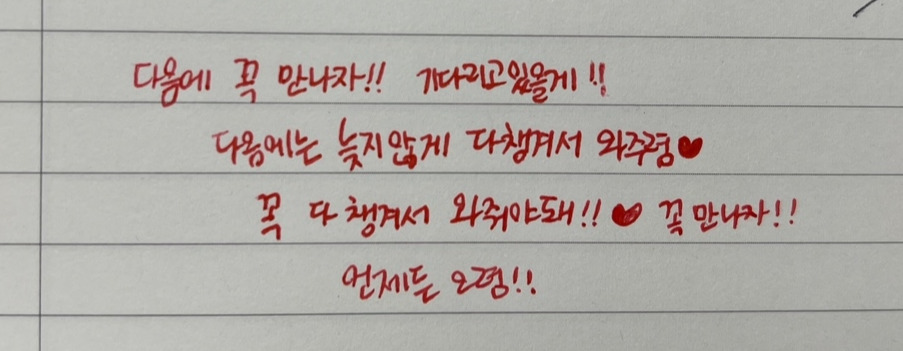 다음에 꼭 만나자!! 기다리고있을게!!
다음에는 늦지않게 다챙겨서 와주렴♥
꼭 다챙겨서 와줘야돼!! ♥ 꼭만나자!!
언제든 오렴!!